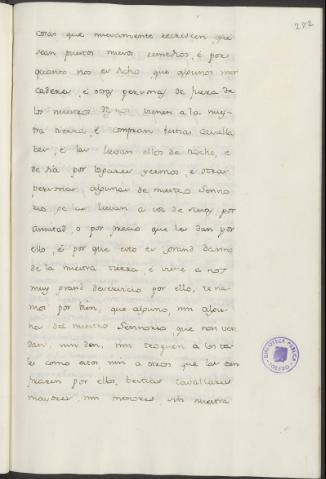 272
cosas que nuevamente recrescen, que
sean puestos nuevos remedios, é por
quanto nos es dicho, que algunos mer
caderes, é otras personas de fuera de
los nuestros Regnos vienen a la nues
tra tierra, é compran bestias cavalla
res, é las llevan ellos de noche, e
de dia por logares yermos, e otras
personas, algunas de nuestro Senno
rio, se las llevan a vos de suyas por
amistad, o por precio que les dan por
ello, é por que esto es grand danno
de la nuestra tierra, é viene a nos
muy grand deservicio por ello, tene
mos por bien, que alguno, nin algu
na del nuestro Sennorio que non ven
dan, nin den, nin troquen a los ta
les como estos, nin a otros que las com
praren por ellos, bestias cavallares
mayores, nin menores, sin nuestra
BIBLIOTECA PUBLICA
TOLEDO